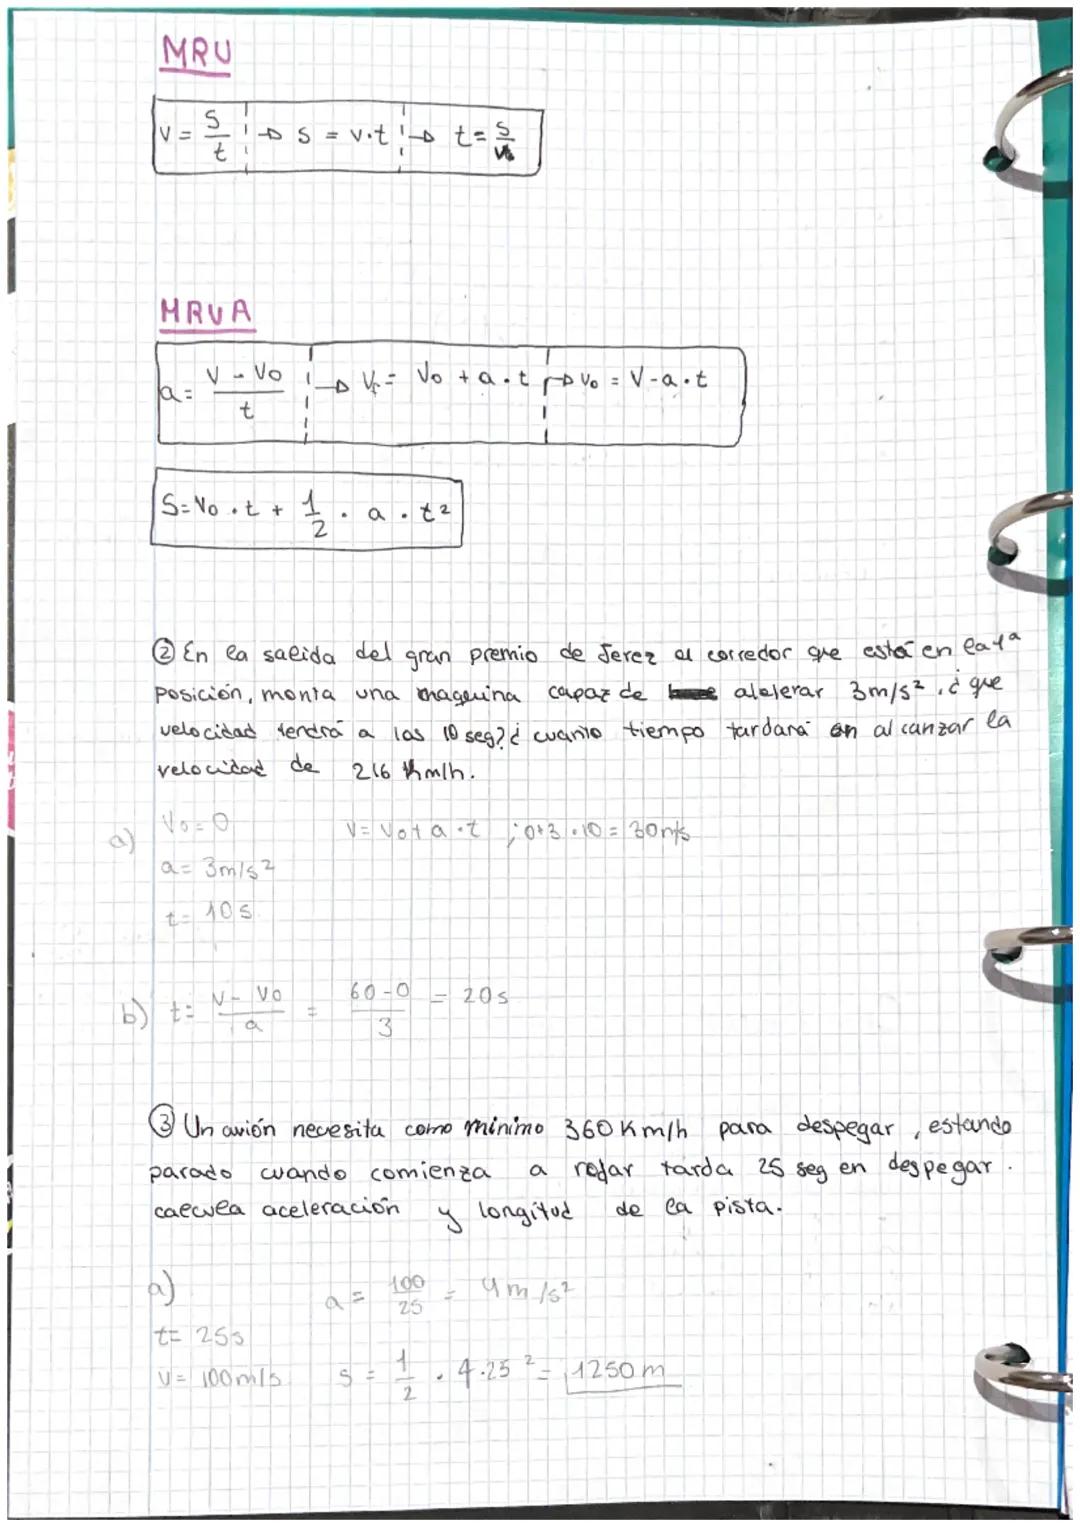 MRU
V = S/t → S = V·t → t = S/V
MRUA
a = V - Vo/t → Vf = Vo + a·t → Vo = V - a·t
S = Vo · t + 1/2 · a · t²
② En la salida del gran premio de Jerez el corredor que está en la 1ª
posición, monta una maquina capaz de alelerar 3m/s², ¿que
velocidad tendrá a las 10 seg? ¿ cuanto tiempo tardará en alcanzar la
velocidad de 216 Km/h.
a) Vo = 0 V = Vo + a · t ; 0+3 · 10 = 30 m/s
a = 3m/s²
t = 10 s
b) t = V - Vo/a = 60 - 0/3 = 20 s
③ Un avión necesita como mínimo 360 Km/h para despegar, estando
parado cuando comienza a rodar tarda 25 seg en despegar.
calcula aceleración y longitud de la pista.
a) a = 100/25 = 4 m/s²
t = 25 s
V = 100 m/s S = 1/2 · 4·25² = 1250 m